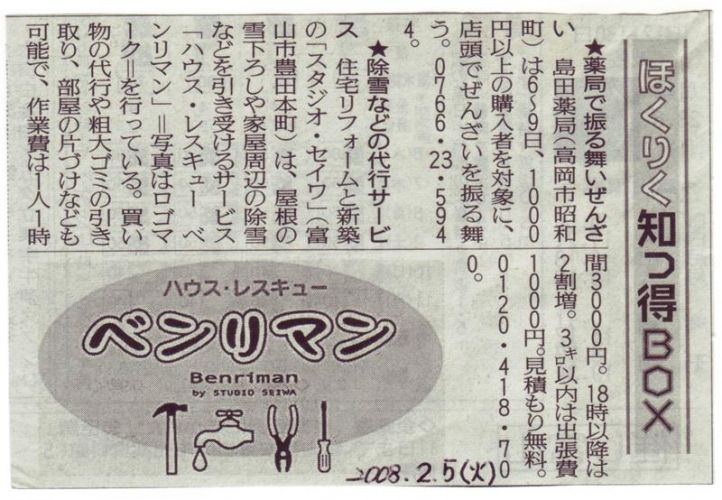 ほくりく知っ得BOX
★薬局で振る舞いぜんざ
い　島田薬局(高岡市昭和
町)は6〜9日、1000
円以上の購入者を対象に、
店頭でぜんざいを振る舞
う。0766・23・594
4。
★除雪などの代行サービ
ス　住宅リフォームと新築
の「スタジオ・セイワ」(富
山市豊田本町)は、屋根の
雪下ろしや家屋周辺の除雪
などを引き受けるサービス
「ハウス・レスキュー　ベ
ンリマン」＝写真はロゴマ
ーク＝を行っている。買い
物の代行や粗大ゴミの引き
取り、部屋の片づけなども
可能で、作業費は1人1時
間3000円。18時以降は
2割増。3㌔以内は出張費
1000円。見積もり無料。
0120・418・70
0。
ハウス・レスキュー
ベンリマン
Benriman
by STUDIO SEIWA
2008.2.5(火)